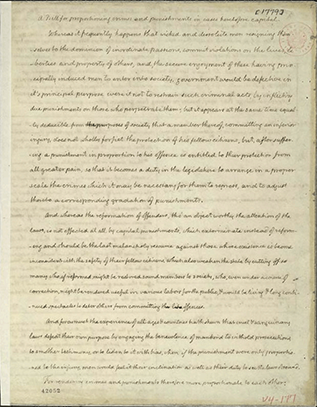 A Bill for proportioning crimes and punishments in cases heretofore capital.
Whereas it frequently happens that wicked and dissolute men resigning them
selves to the dominion of inordinate passions, commit violations on the lives, li-
berties and property of others, and, the secure enjoyment of these having prin-
cipally induced men to enter into society, government would be defective in
it's principal purpose were it not to restrain such criminal acts by inflicting
due punishments on those who perpetrate them; but it appears at the same time equal-
ly deducible from the purposes of society that a member thereof, committing an inferior
injury, does not wholly forfiet the protection of his fellow citizens, but, after suffer-
ing a punishment in proportion to his offence is entitled to their protection from
all greater pain, so that it becomes a duty in the legislature to arrange in a proper
scale the crimes which it may be necessary for them to repress, and to adjust
thereto a corresponding gradation of punishments.
And whereas the reformation of offenders, tho' an object worthy the attention of the
laws, is not effected at all by capital punishments, which exterminate instead of reform-
ing, and should be the last melancholy resource against those whose existence is become
inconsistent with the safety of their fellow citizens, which also weaken the state by cutting off so
many who, if reformed, might be restored sound members to society, who, even under a course of
correction, might be rendered useful in various labors for the public, & would be living & long con-
tinued spectacles to deter others from committing the like offences.
And forasmuch the experience of all ages & countries hath shewn that cruel & sanguinary
laws defeat their own purpose by engaging the benevolence of mankind to withhold prosecutions
to smother testimony, or to listen to it with bias, when, if the punishment were only proportion-
ed to the injury, men would feel it their inclination as well as their duty to see the laws observed.
For rendering crimes and punishments therefore more proportionate to each other,
42052